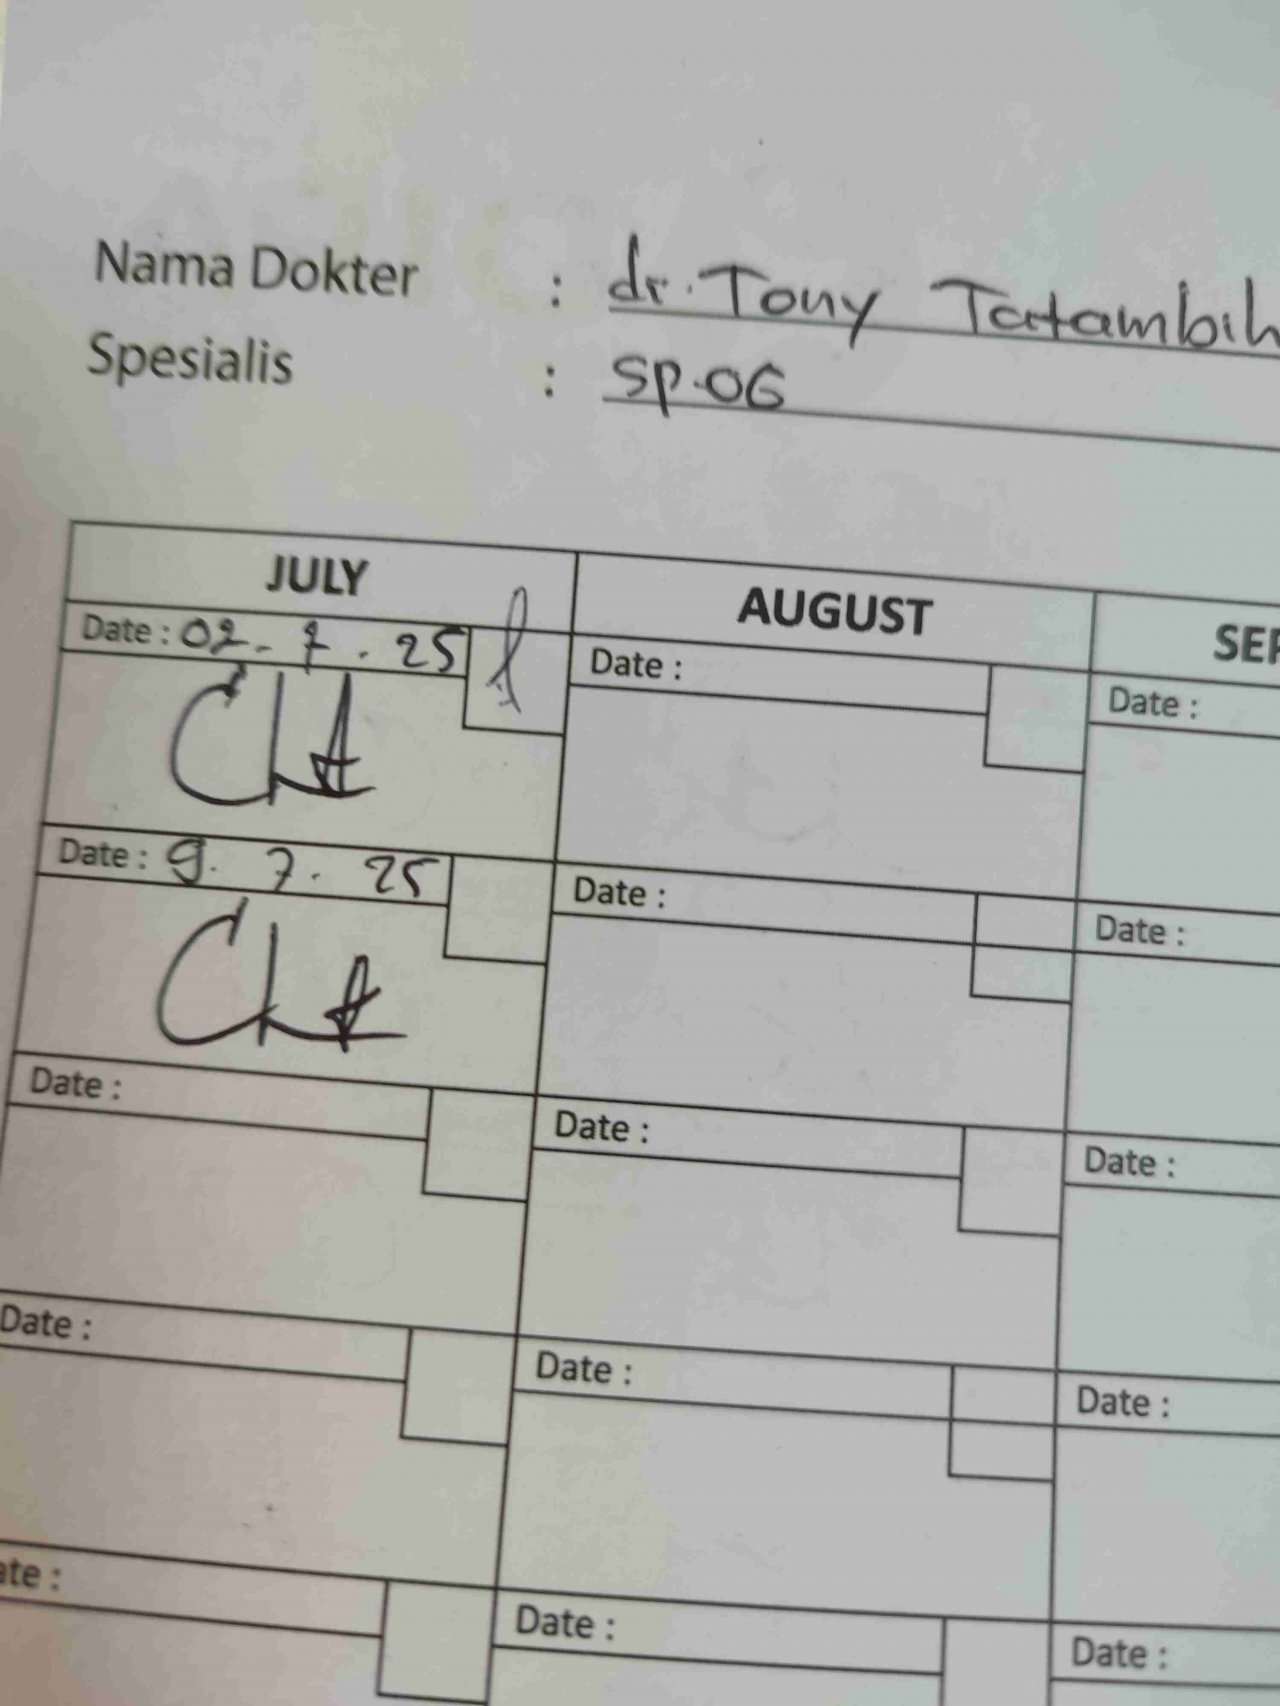 Nama Dokter : dr. Tony Tatambih
Spesialis : SP.OG
JULY AUGUST SEP
Date : 02. 7. 25 Date : Date :
Date : 9. 7. 25 Date : Date :
Date : Date : Date :
Date : Date : Date :
ate : Date : Date :